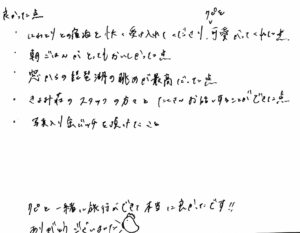 良かった点
・にわとりとの宿泊を快く受け入れてくださり、可愛がってくれた点
・朝ごはんがとってもおいしかった点
・窓からの琵琶湖の眺めが最高だった点
・きよみ荘のスタッフの方々とたくさんお話しすることができた点
・写真入り缶バッチを頂けたこと
と一緒に旅行ができて本当に良かったです!!
ありがとうございました